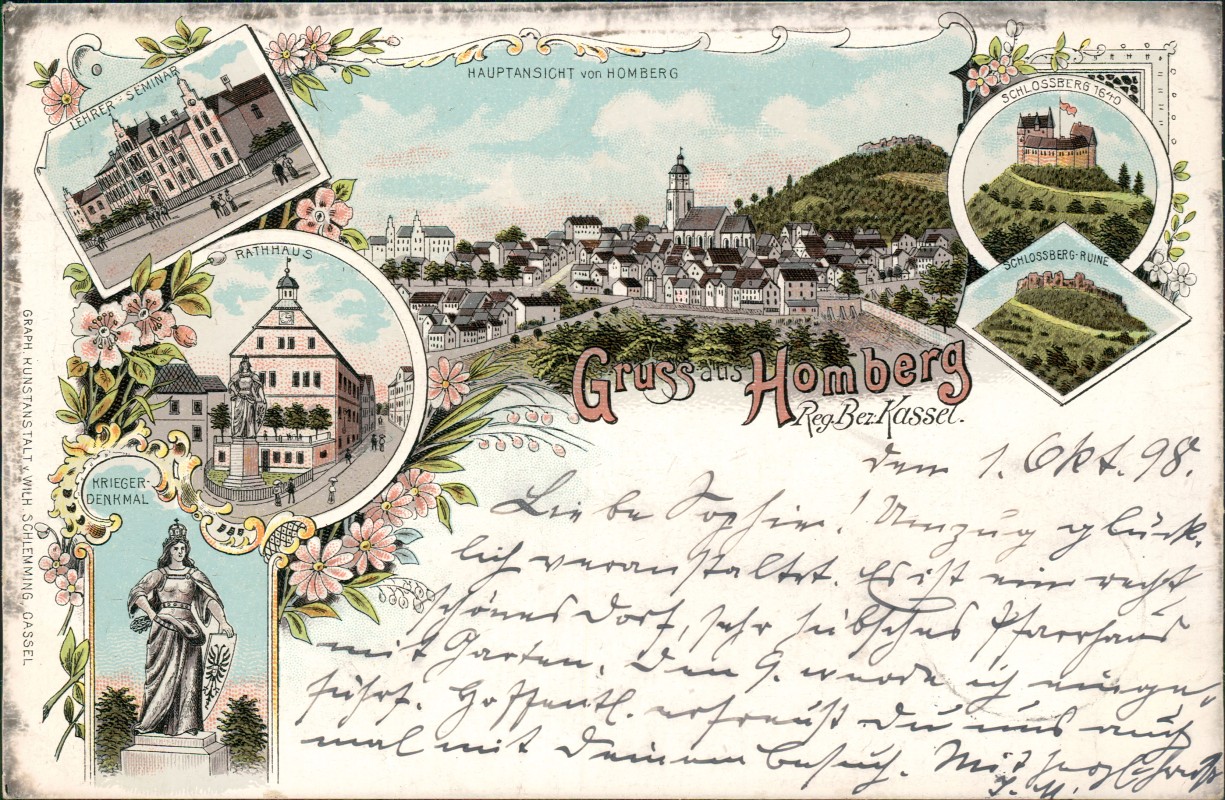 HAUPTANSICHT von HOMBERG
LEHRER-SEMINAR
SCHLOSSBERG 1640
RATHHAUS
SCHLOSSBERG-RUINE
Gruss aus Homberg
Reg. Bez. Kassel.
KRIEGER-
DENKMAL
GRAPH. KUNSTANSTALT v. WILH. SCHLEMMING, CASSEL
den 1. Okt. 98.
Liebe Sophie! Umzug glück-
lich veranstaltet. Es ist ein recht
schönes Dorf, sehr hübsches Pfarrhaus
mit Garten. Den 9. werde ich einge-
führt. Hoffentl. erfreust Du uns auch
mal mit Deinem Besuch. Mit